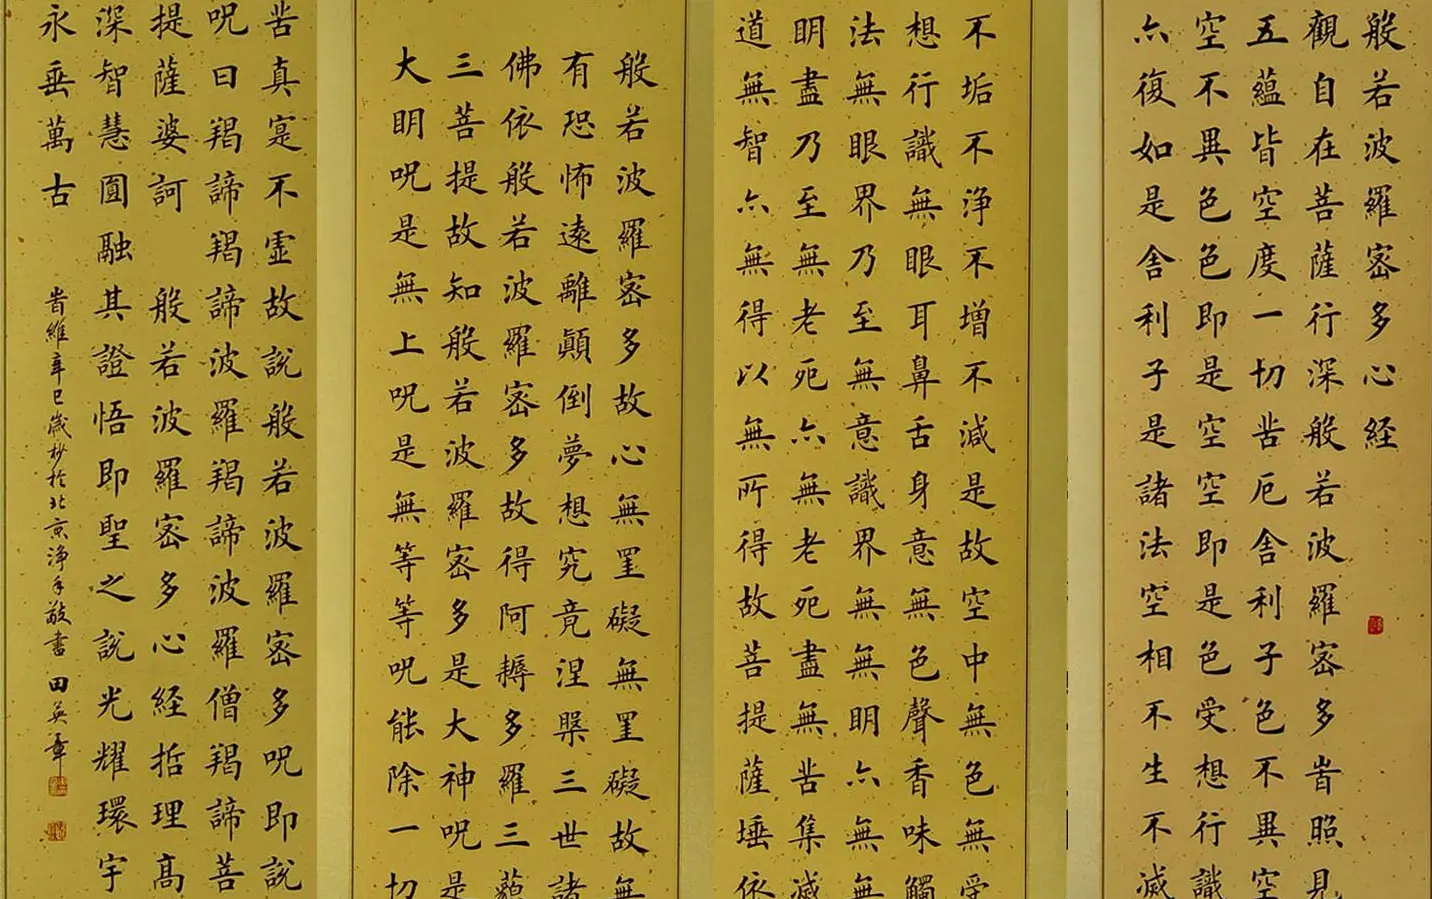 般若波羅密多心経
觀自在菩薩行深般若波羅密多旹照見
五蘊皆空度一切苦厄舍利子色不異空
空不異色色即是空空即是色受想行識
亦復如是舍利子是諸法空相不生不滅
不垢不浄不增不減是故空中無色無受
想行識無眼耳鼻舌身意無色聲香味觸
法無眼界乃至無意識界無無眀亦無無
眀盡乃至無老死亦無老死盡無苦集滅
道無智亦無得以無所得故菩提薩埵依
般若波羅密多故心無罣礙無罣礙故無
有恐怖遠離顛倒夢想究竟涅槃三世諸
佛依般若波羅密多故得阿耨多羅三藐
三菩提故知般若波羅密多是大神呪是
大眀呪是無上呪是無等等呪能除一切
苦真寔不虛故說般若波羅密多呪即說
呪曰羯諦羯諦波羅羯諦波羅僧羯諦菩
提薩婆訶 般若波羅密多心経哲理高
深智慧圓融其證悟即聖之說光耀環宇
永垂萬古
旹維辛巳歲杪於北京浄手敬書 田英章